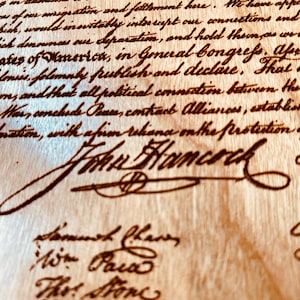 of our emigration and settlement here. We have appe
which would inevitably interrupt our connections and
which denounces our Separation, and hold them, as we
tates of America, in General Congress, Ass
olonies, solemnly publish and declare, That
own, and that all political connection between the
War, conclude Peace, contract Alliances, establish
ration, with a firm reliance on the Protection
John Hancock
Samuel Chase
Wm Paca
Thos Stone